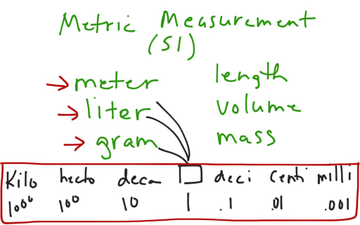 Metric Measurement
(SI)
→ meter length
→ liter volume
→ gram mass
Kilo hecto deca deci centi milli
1000 100 10 1 .1 .01 .001